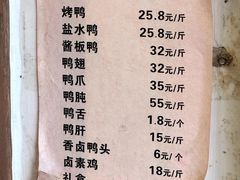 烤鸭 25.8元/斤
盐水鸭 25.8元/斤
酱板鸭 32元/斤
鸭翅 32元/斤
鸭爪 35元/斤
鸭肫 55元/斤
鸭舌 1.8元/个
鸭肝 15元/斤
香卤鸭头 6元/个
卤素鸡 18元/斤
礼盒